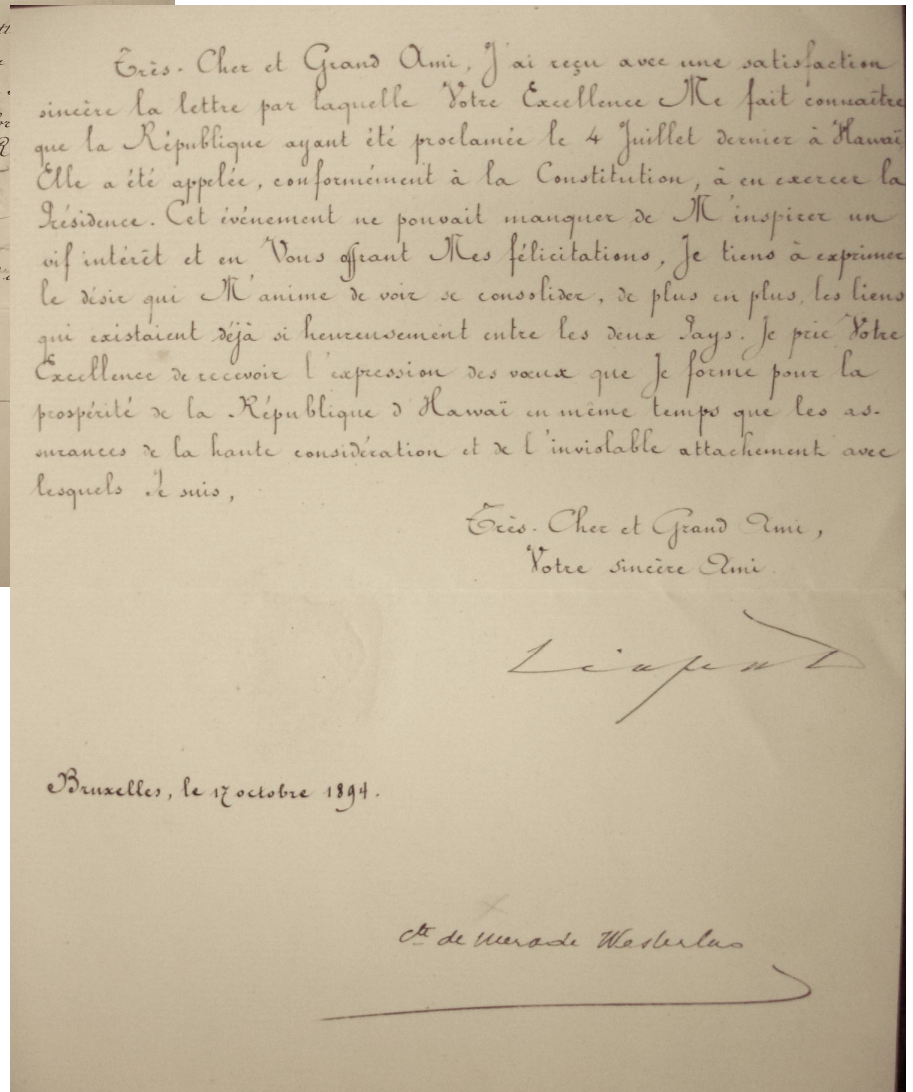 Très-Cher et Grand Ami, J'ai reçu avec une satisfaction
sincère la lettre par laquelle Votre Excellence Me fait connaître
que la République ayant été proclamée le 4 Juillet dernier à Hawaï
Elle a été appelée, conformément à la Constitution, à en exercer la
Présidence. Cet événement ne pouvait manquer de M'inspirer un
vif intérêt et en Vous offrant Mes félicitations, Je tiens à exprimer
le désir qui M'anime de voir se consolider, de plus en plus, les liens
qui existaient déjà si heureusement entre les deux Pays. Je prie Votre
Excellence de recevoir l'expression des vœux que Je forme pour la
prospérité de la République d'Hawaï en même temps que les as-
surances de la haute considération et de l'inviolable attachement avec
lesquels Je suis,
Très-Cher et Grand Ami,
Votre sincère Ami
Léopold
Bruxelles, le 17 octobre 1894.
Cte de Merode Westerloo